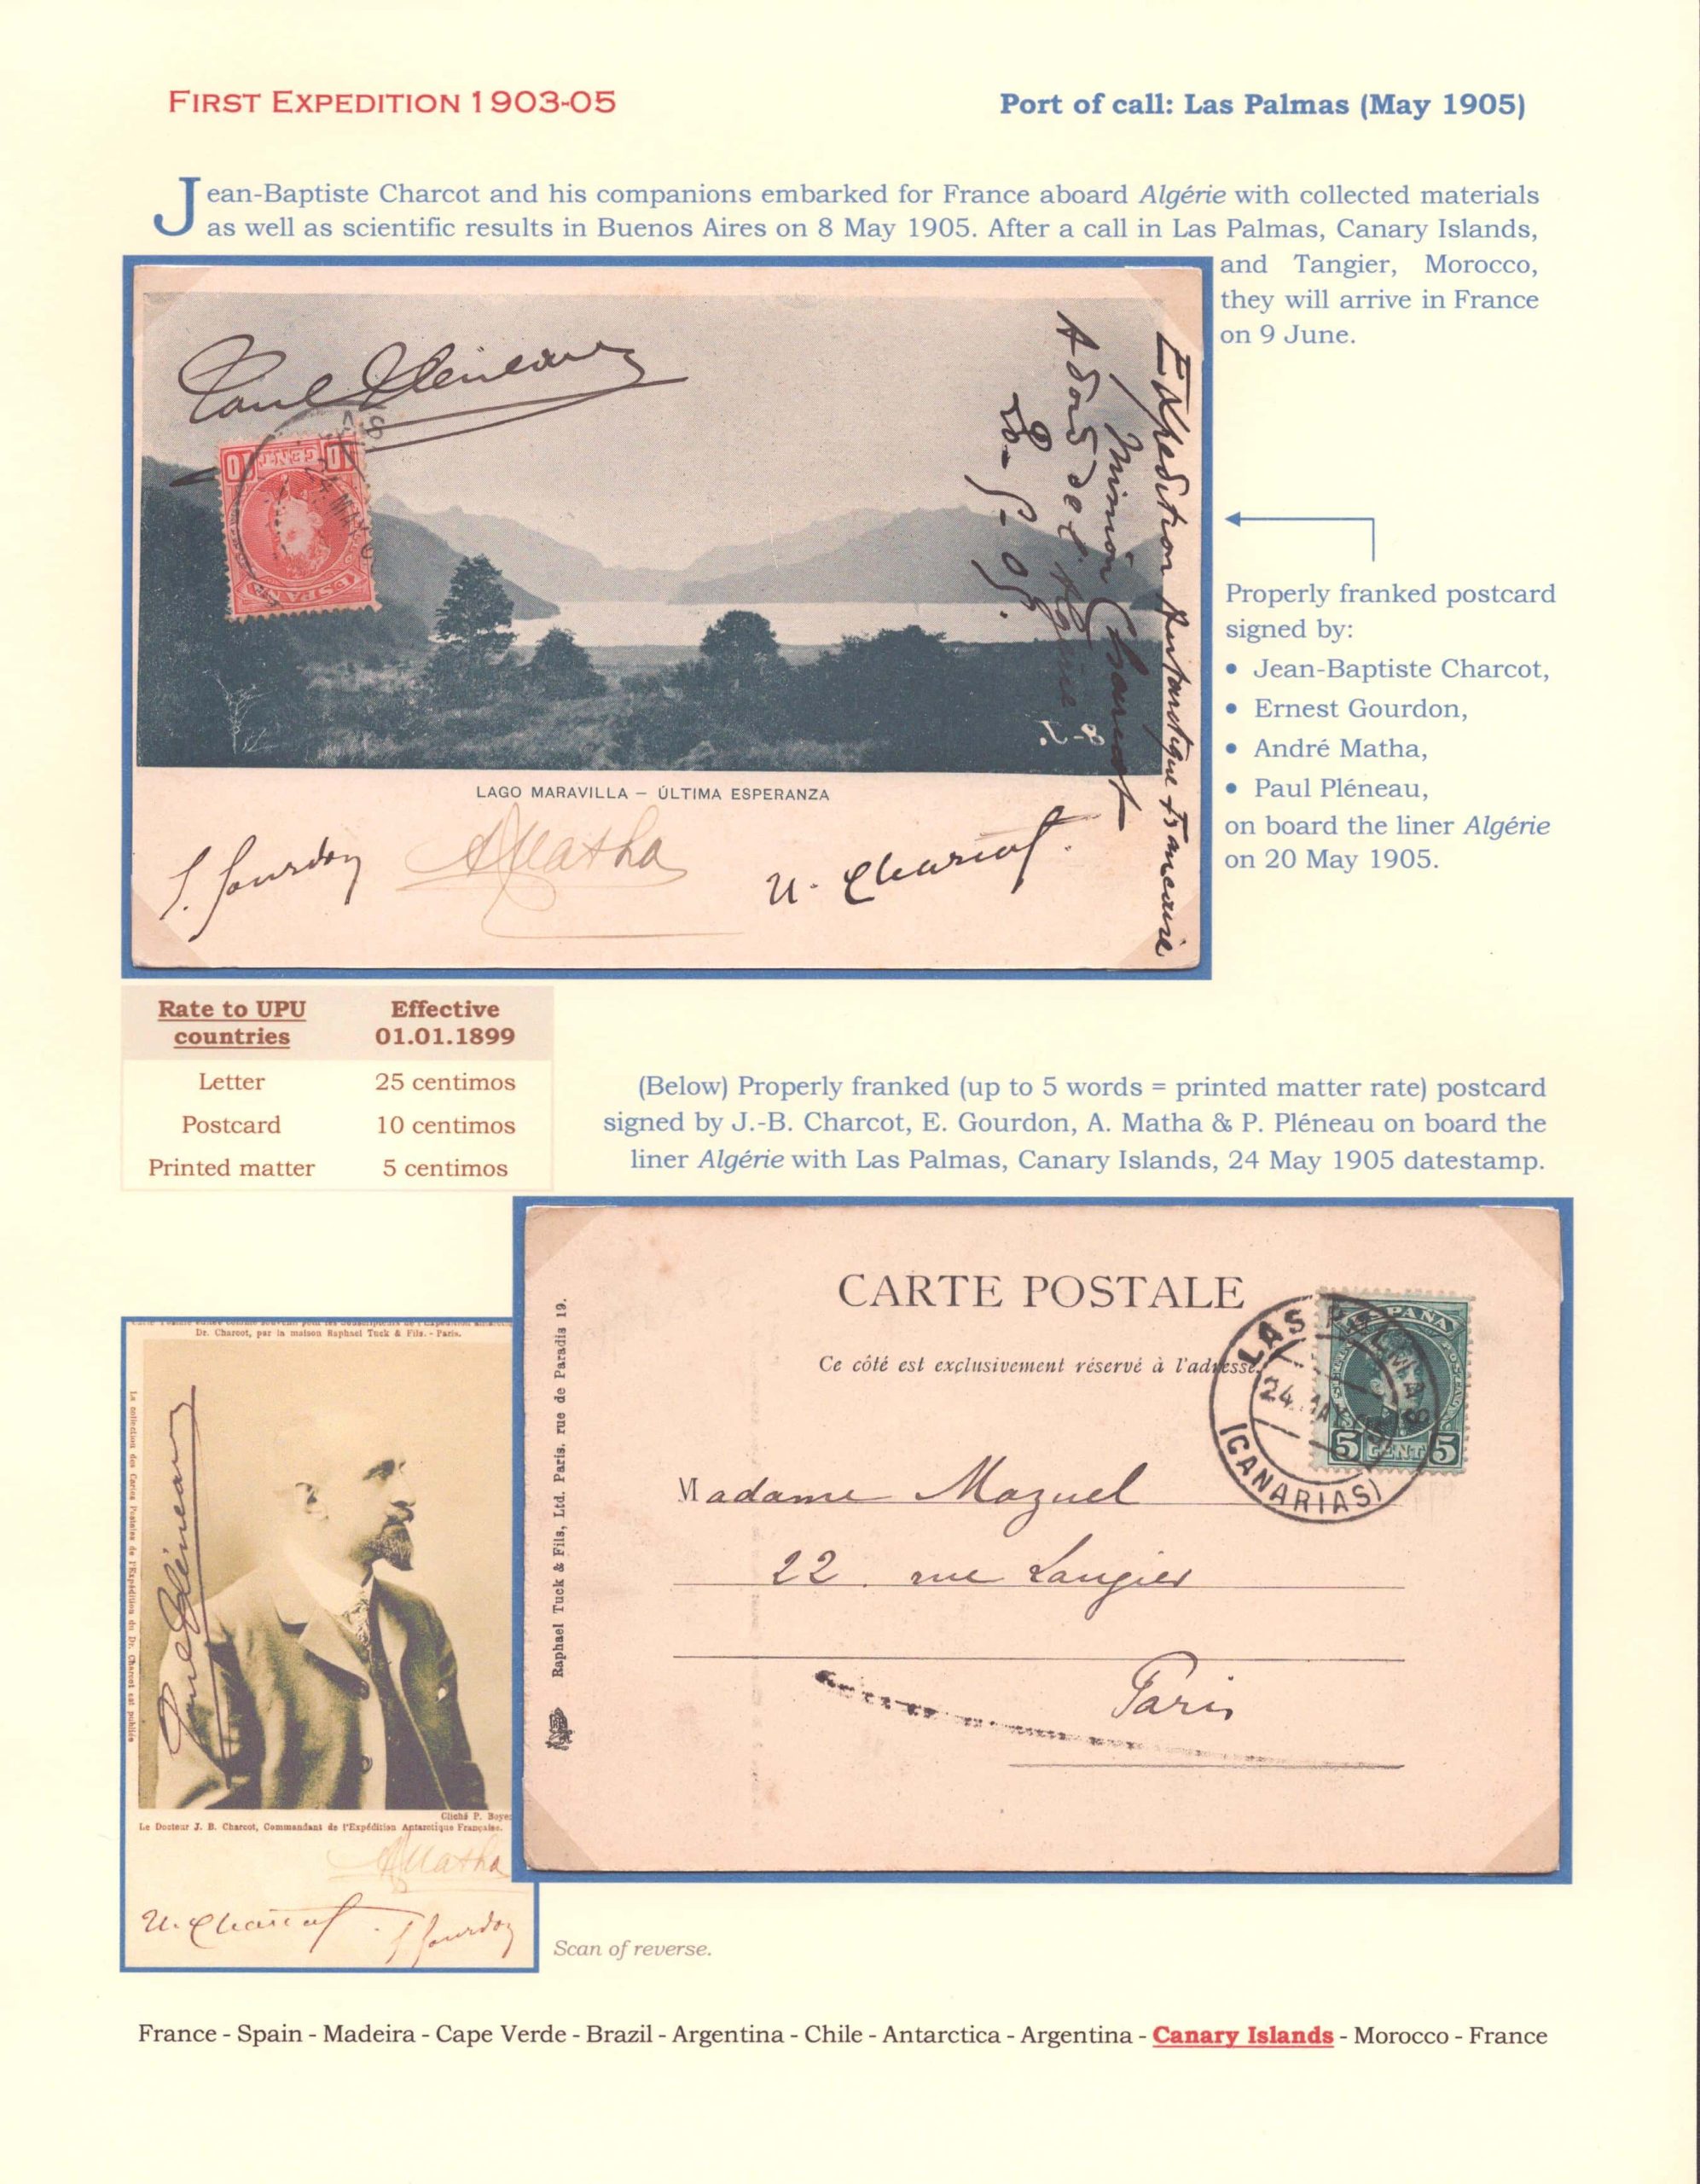 FIRST EXPEDITION 1903-05
Port of call: Las Palmas (May 1905)
Jean-Baptiste Charcot and his companions embarked for France aboard Algérie with collected materials
as well as scientific results in Buenos Aires on 8 May 1905. After a call in Las Palmas, Canary Islands,
and Tangier, Morocco,
they will arrive in France
on 9 June.
Paul Pléneau
10 CENT 10
ESPAÑA
Expedition Antarctique Française
Mission Charcot
A bord de l'Algérie
20-5-05.
8-J.
LAGO MARAVILLA – ÚLTIMA ESPERANZA
E. Gourdon
AMatha
J. Charcot.
Properly franked postcard
signed by:
• Jean-Baptiste Charcot,
• Ernest Gourdon,
• André Matha,
• Paul Pléneau,
on board the liner Algérie
on 20 May 1905.
Rate to UPU countries
Effective 01.01.1899
Letter 25 centimos
Postcard 10 centimos
Printed matter 5 centimos
(Below) Properly franked (up to 5 words = printed matter rate) postcard
signed by J.-B. Charcot, E. Gourdon, A. Matha & P. Pléneau on board the
liner Algérie with Las Palmas, Canary Islands, 24 May 1905 datestamp.
CARTE POSTALE
Ce côté est exclusivement réservé à l'adresse
Raphael Tuck & Fils, Ltd. Paris. rue de Paradis 19.
LAS PALMAS
24 MAY
(CANARIAS)
ESPAÑA
5 CENT 5
Madame Mazuel
22. rue Laugier
Paris
Dr. Charcot, par la maison Raphael Tuck & Fils. - Paris.
La collection des Cartes Postales de l'Expédition du Dr. Charcot est publiée
Paul Pléneau
Cliché P. Boyer
Le Docteur J. B. Charcot, Commandant de l'Expédition Antarctique Française.
AMatha
J. Charcot
E Gourdon
Scan of reverse.
France - Spain - Madeira - Cape Verde - Brazil - Argentina - Chile - Antarctica - Argentina - Canary Islands - Morocco - France